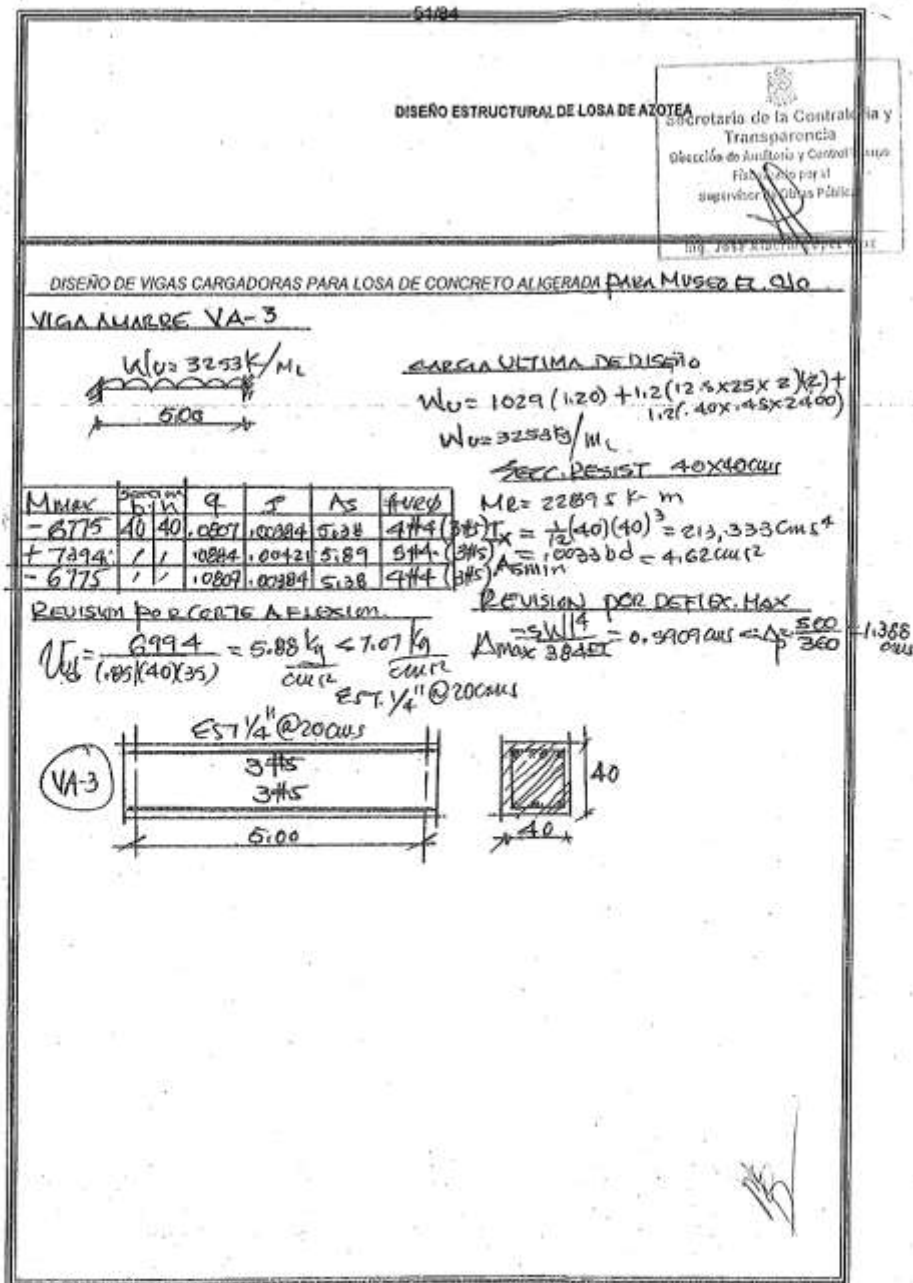 51/84
DISEÑO ESTRUCTURAL DE LOSA DE AZOTEA
Secretaría de la Contraloría y
Transparencia
Dirección de Auditoría y Control
por el
Supervisor de Obras Públicas
Ing. José
DISEÑO DE VIGAS CARGADORAS PARA LOSA DE CONCRETO ALIGERADA PARA MUSEO EL OJO
VIGA AMARRE VA-3
Wu= 3253K/ML
5.00
CARGA ULTIMA DE DISEÑO
Wu= 1029 (1.20) + 1.2(12.5x25x2)(2)+
1.2(.40x.45x2400)
Wu= 3253 Kg/ML
SECC. RESIST 40X40cms
MR= 22895 K-m
Mmax Seccion b h q P As #VRS
-6775 40 40 .0807 .00384 5.38 4#4 (3#5)
+7394 / / .0884 .00421 5.89 5#4 (3#5)
-6775 / / .0807 .00384 5.38 4#4 (3#5)
Ix = 1/12(40)(40)³ = 213,333 cms⁴
Asmin = .0033bd = 4.62 cms²
REVISION POR CORTE A FLEXION.
REVISION POR DEFLEX. MAX
= 6994/(.85)(40)(35) = 5.88 kg/cms² < 7.07 kg/cms²
Δmax = 5Wl⁴/384EI = 0.5909 cms < Δp = 500/360 = 1.388 cms
EST. 1/4" @ 20cms
EST 1/4" @ 20cms
VA-3
3#5
3#5
5.00
40
40